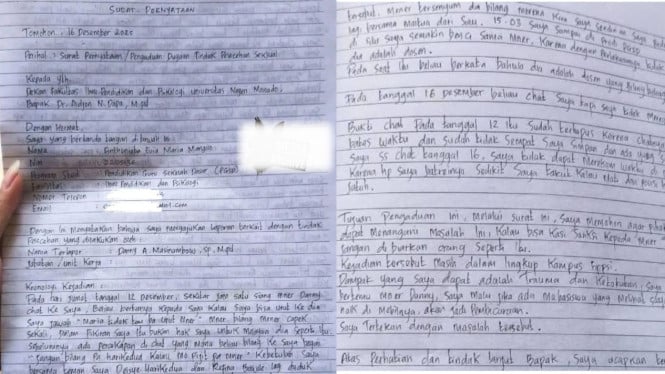 SURAT PERNYATAAN
Tomohon, 16 Desember 2025
Perihal : Surat Pernyataan / Pengaduan Dugaan Tindak Pelecehan Seksual
Kepada Yth,
Dekan Fakultas Ilmu Pendidikan dan Psikologi Universitas Negeri Manado,
Bapak Dr. Aldjon N. Dapa, M.pd
Dengan Hormat,
Saya yang bertanda tangan di bawah ini
Nama : Evia Maria
Nim
Program Studi : Pendidikan Guru Sekolah Dasar (PGSD)
Fakultas : Ilmu Pendidikan dan Psikologi
Nomor Telepon
Email
Dengan ini Menyatakan bahwa saya mengajukan laporan terkait dengan tindak
Pelecehan yang dilakukan oleh :
Nama Terlapor : Danny A. Masinambow, Sp, M.pd
Jabatan / Unit Kerja :
Kronologi Kejadian :
Pada hari Jumat tanggal 12 Desember, sekitar jam satu siang Mner Danny
chat Ke Saya, Beliau bertanya Kepada Saya Kalau Saya bisa
Saya Jawab "Maria tidak tau Mner" Mner bilang Mner Capek
Sekali, dalam Pikiran Saya Itu bukan hak Saya untuk dia Seperti itu.
Sebelumnya ada percakapan di chat yang Mana beliau bilang Ke Saya begini
"Jangan bilang pa Kalau Mo pa mner" Kebetulan Saya
bersama teman Saya dan duduk
tersebut. Mner tersenyum dia bilang
bersama 15:03 Saya Sampai di
di Situ Saya semakin benci Sama Mner, Karena
dia adalah dosen.
Pada Saat itu beliau berkata bahwa dia adalah dosen yang
Pada tanggal 16 Desember beliau chat Saya tapi Saya tidak
Bukti chat Pada tanggal 12 itu Sudah terhapus Karena
batas waktu dan sudah tidak Sempat Saya Simpan dan ada yang
Saya SS chat tanggal 16, Saya tidak dapat Merekam Waktu di
Karena hp Saya batreinya Sedikit Saya takut Kalau Mati dan posisi
jatuh.
Tujuan Pengaduan ini, Melalui Surat ini, Saya Memohon agar pihak
dapat Menangani Masalah Ini, Kalau bisa Kasi Sanksi Kepada Mner
Jangan di biarkan orang Seperti itu.
Kejadian tersebut Masih dalam lingkup Kampus
Dampak yang Saya dapat adalah Trauma dan Ketakutan, Saya
bertemu Mner Danny, Saya Malu jika ada Mahasiswa yang Melihat Saya
naik di Mobilnya, akan jadi
Saya Tertekan dengan masalah tersebut.
Atas Perhatian dan tindak lanjut Bapak, Saya ucapkan